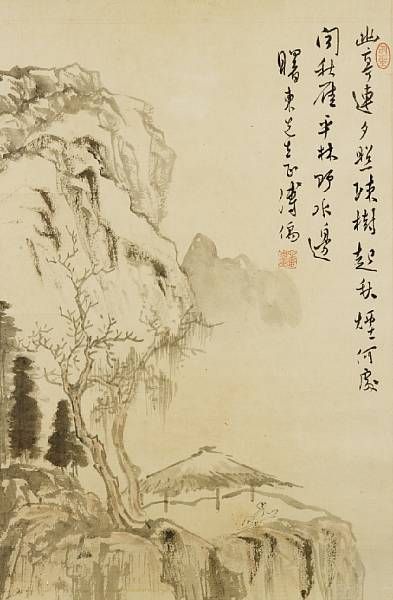 幽亭連夕照疎樹起秋煙何處
聞秋雁平林野水邊
曙東先生正溥儒